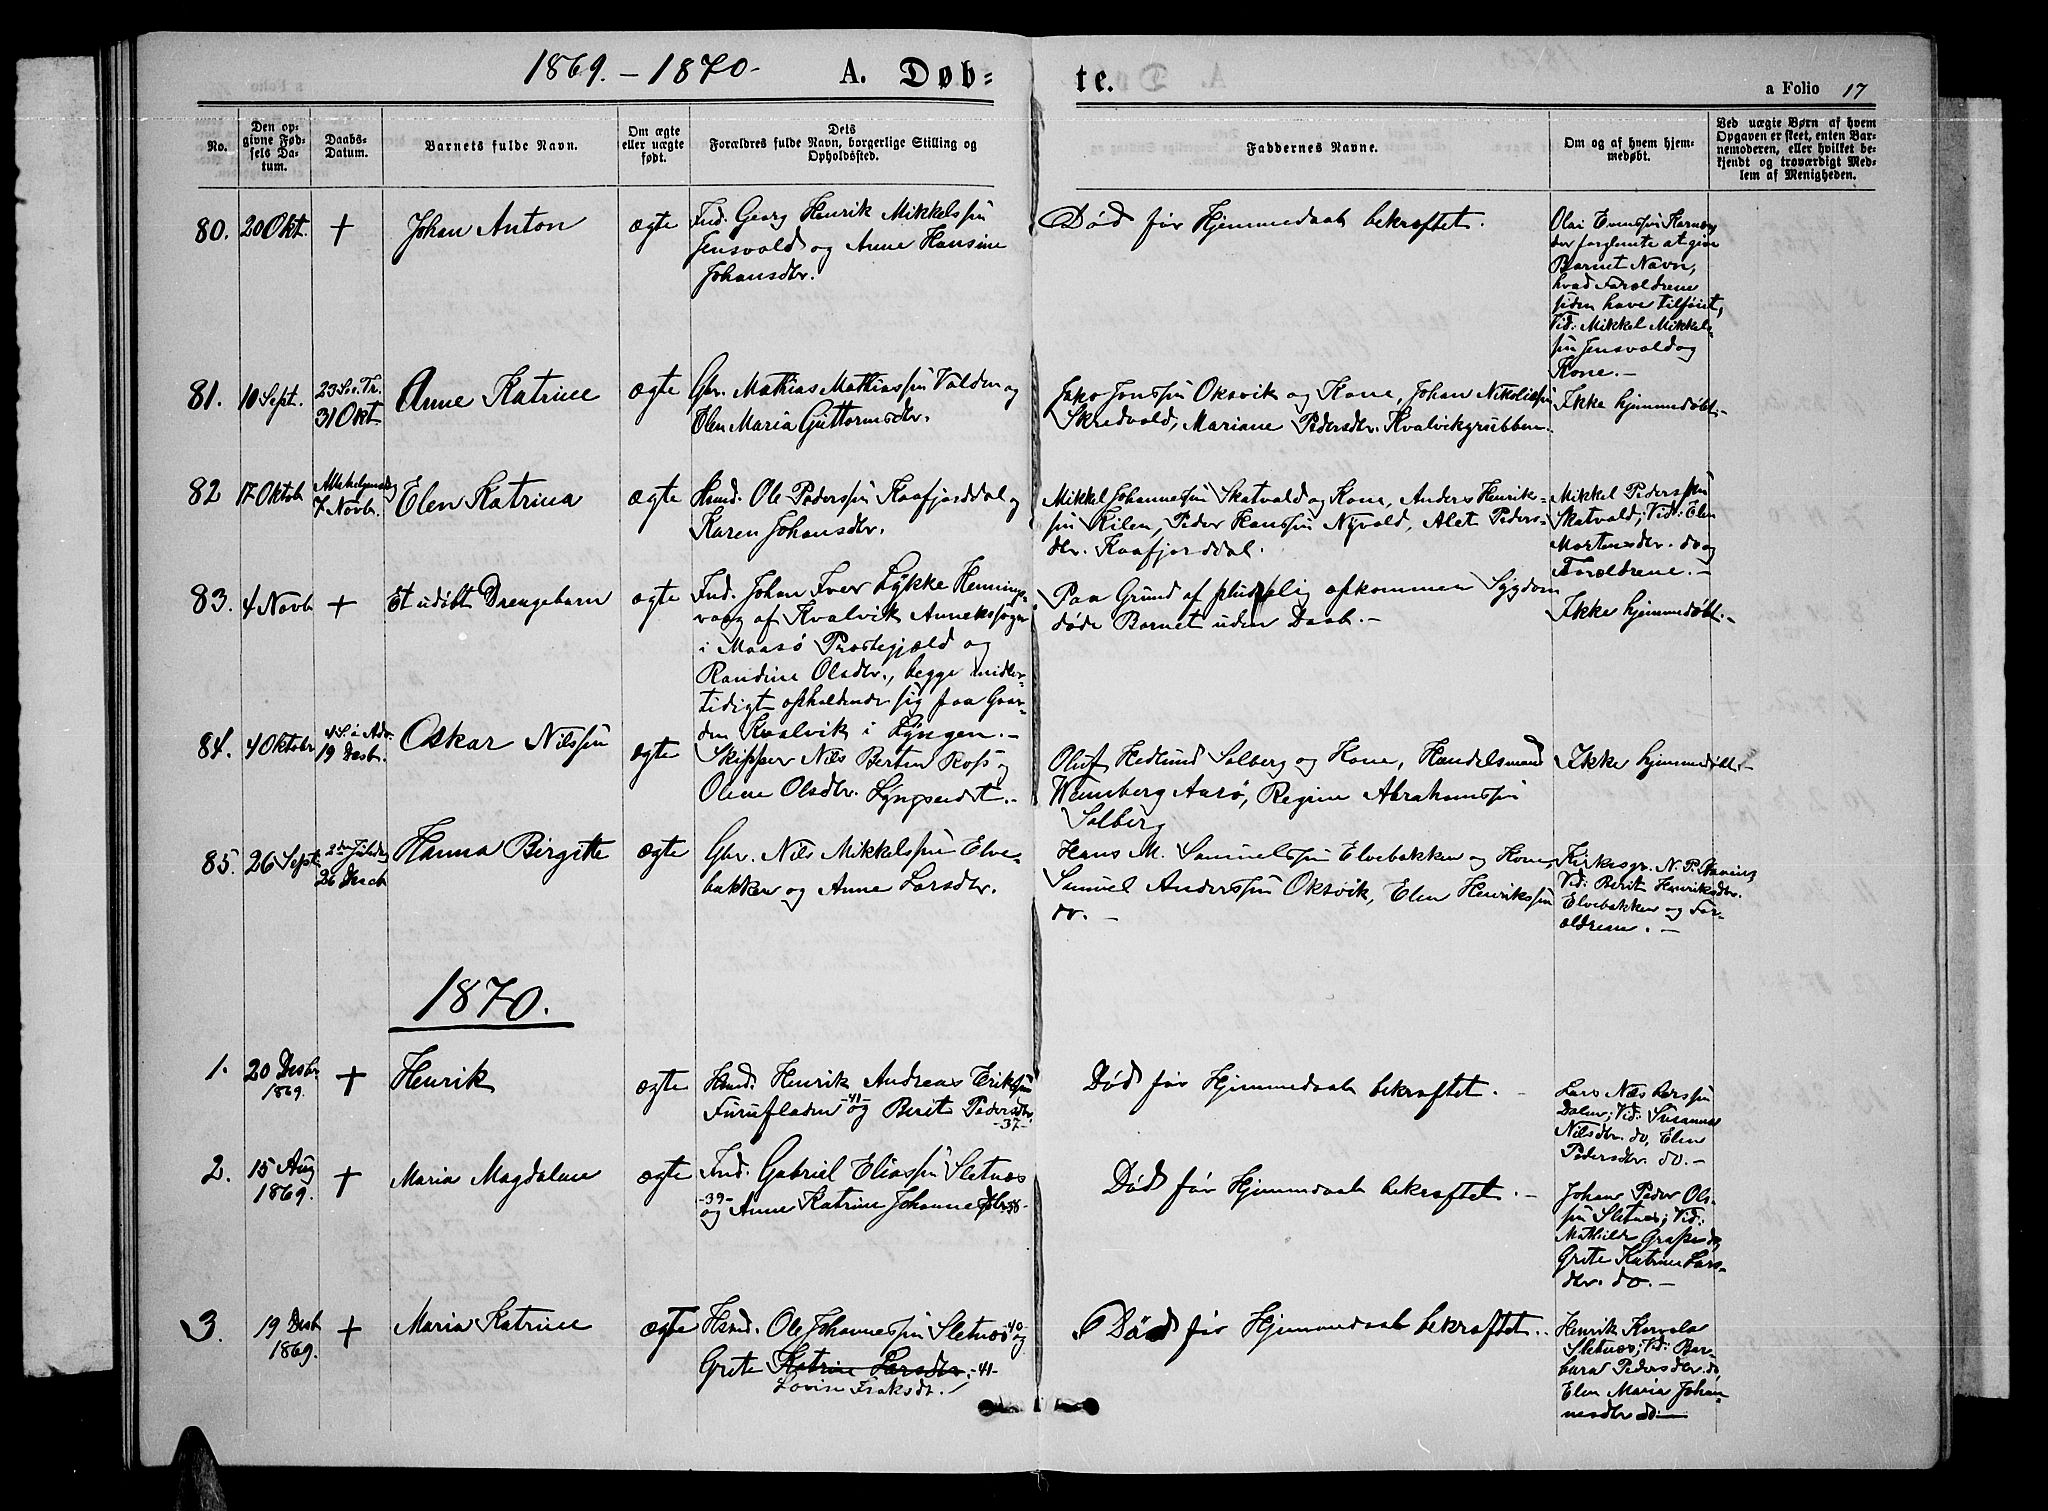 1869. - 1870.
A. Døb=
te.
a Folio 17
No.
Den op-
givne Fød-
sels Da-
tum.
Daabs-
Datum.
Barnets fulde Navn.
Om ægte
eller uægte
født.
Dels
Forældres fulde Navn, borgerlige Stilling og
Opholdssted.
Faddernes Navne.
Om og af hvem hjem-
medøbt.
Ved uægte Børn af hvem
Opgaven er skeet, enten Bar-
nemoderen, eller hvilket be-
kjendt og troværdigt Med-
lem af Menigheden.
80. 20 Okt. + Johan Anton ægte
Ind. Georg Henrik Mikkelssøn
Jensvold og Anne Hansine
Johansdtr.
Død før Hjemmedaab bekræftet.
Olai Evenssøn Hamnæs
der forglemte at give
Barnet Navn,
hvad Forældrene
siden have tilføiet,
Vid: Mikkel Mikkels-
søn Jensvold og
Kone. -
81. 10 Sept. 23 S. e. Tr.
31 Okt
Anne Katrine ægte
Gbr. Mathias Mathiassøn Valden og
Elen Maria Guttormsdtr.
Jako Jonssøn Oksvik og Kone, Johan Nikolissøn
Skredvold, Mariane Pedersdtr. Kvalvikgrubben.
Ikke hjemmedøbt. -
82 17 Oktob Allehelgensdag
7 Novb.
Elen Katrina ægte
Hsmd. Ole Pederssøn Kaafjorddal og
Karen Johansdtr.
Mikkel Johannessøn Skatvold og Kone, Anders Henriks-
søn Kilen, Peder Hanssøn Nyvold, Alet Peders-
dtr. Kaafjorddal.
Mikkel Pederssøn
Skatvold; Vid: Elen
Mortensdtr. do og
Forældrene. -
83. 4 Novb + Et udøbt Drengebarn ægte
Ind. Johan Iver Lykke Hennings-
vaag af Kvalvik Annekssogn
i Maasø Præstegjæld og
Randine Olsdtr., begge midler-
tidigt opholdende sig paa Gaar-
den Kvalvik i Lyngen. -
Paa Grund af pludselig opkommen Sygdom
døde Barnet uden Daab. -
Ikke hjemmedøbt. -
84. 4 Oktobr 4 S. i Adv.
19 Decbr.
Oskar Nilssøn ægte
Skipper Nils Bertin Ross og
Olene Olsdtr. Lyngseidet. -
Oluf Hedlund Solberg og Kone, Handelsmand
Wennberg Aarø, Regine Abrahamssøn
Solberg
Ikke hjemmedøbt -
85. 26 Sept 2den Juledag
26 Decb
Hanna Birgitte ægte
Gbr. Nils Mikkelssøn Elve-
bakken og Anne Larsdtr.
Hans M. Samuelssøn Elvebakken og Kone,
Samuel Anderssøn Oksvik, Elen Henrikssøn
do. -
Kirkesgr. N. P. Steining
Vid: Berit Henriksdtr.
Elvebakken og For-
ældrene. -
1870.
1. 20 Decbr.
1869. + Henrik ægte
Hsmd. Henrik Andreas Erikssøn
Furuflaten -41- og Berit Pedersdtr.
-37-
Død før Hjemmedaab bekræftet. -
Lars Næs Larssøn
Dalen; Vid: Susanna
Nilsdtr. do, Elen
Pedersdtr. do. -
2. 15 Aug
1869. + Maria Magdalene ægte
Ind. Gabriel Eliassøn Sletnæs
-39- og Anne Katrine Johannesdtr. -38-
Død før Hjemmedaab bekræftet. -
Johan Peder Ols-
søn Sletnæs; Vid:
Mathilde Grape do,
Grete Katrine Lars-
dtr. do. -
3. 19 Decb
1869. + Maria Katrine ægte
Hsmd. Ole Johannessøn Sletnæs -40- og
Grete Katrine Larsdtr. -41-
Lovise Isaksdt.
Død før Hjemmedaab bekræftet. .
Henrik Kervela
Sletnæs; Vid: Bar-
bara Pedersdtr. do,
Elen Maria Johan-
nesdtr do -